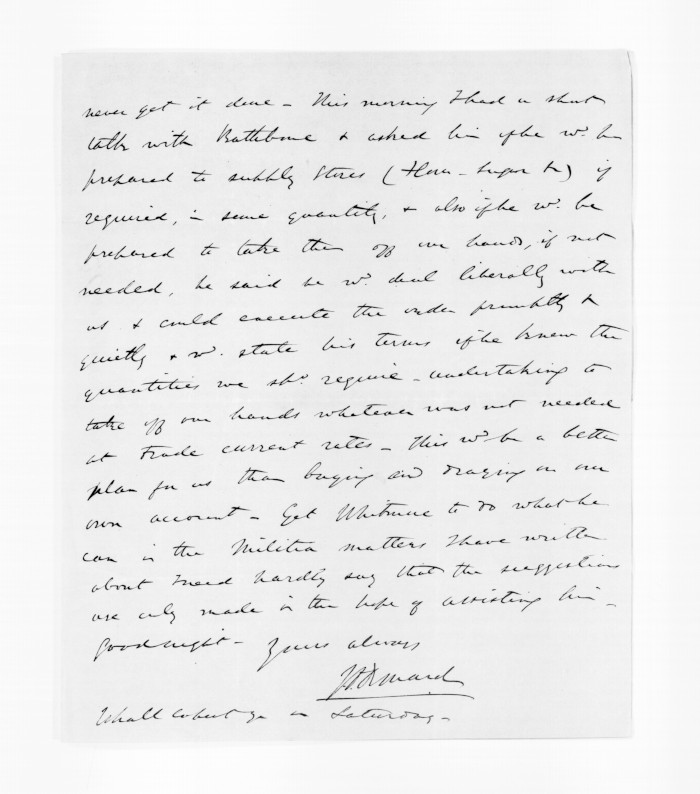 never get it done - This morning I had a short
talk with Rathbone & asked him if he wd. be
prepared to supply Stores (Flour - Sugar &c) if
required, in some quantity, & also if he wd. be
prepared to take them off our hands, if not
needed, he said he wd. deal liberally with
us & could execute the order promptly &
quietly & wd. state his terms if he knew the
quantities we shd. require - undertaking to
take off our hands whatever was not needed
at trade current rates - This wd be a better
plan for us than buying and draying on our
own account - Get Whitmore to do what he
can in the Militia matters I have written
about I need hardly say that the suggestions
are only made in the hope of assisting him -
Good night - Yours always
I shall expect you on Saturday -